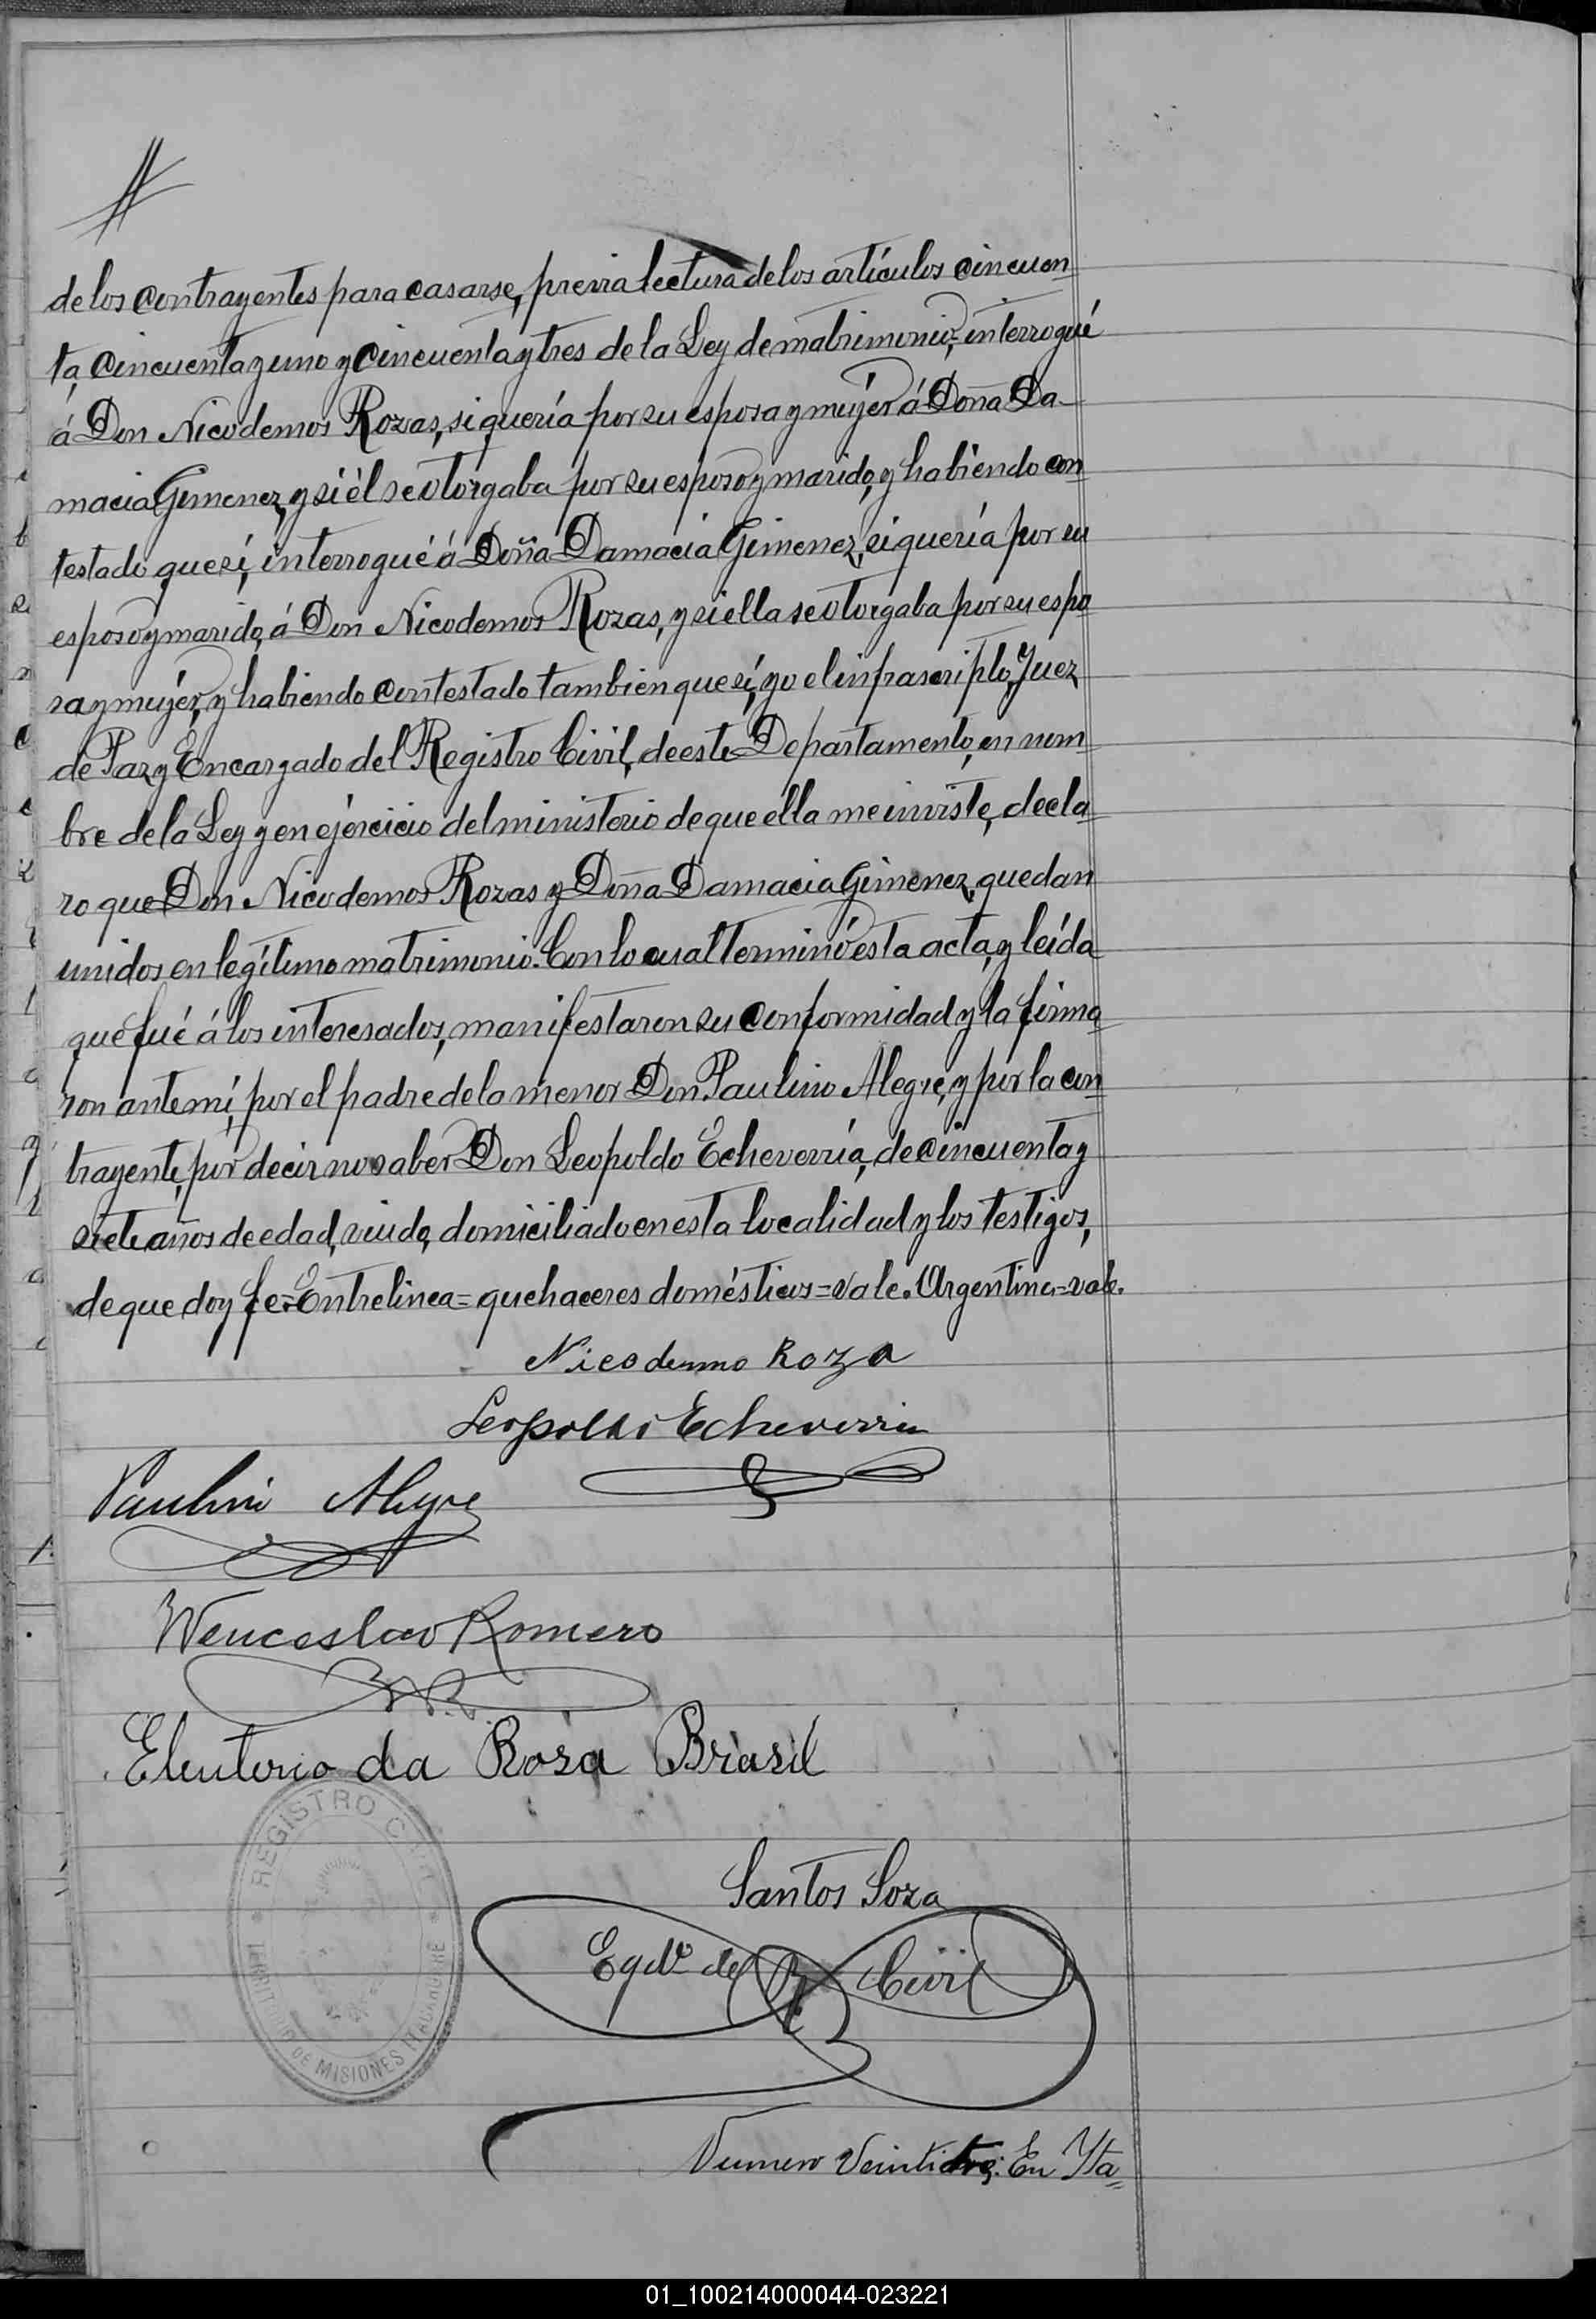 de los contrayentes para casarse, previa lectura de los artículos cincuen
ta, cincuenta y uno y cincuenta y tres de la Ley de matrimonio, interrogué
á Don Nicodemos Rozas, si quería por su esposa y mujér á Doña Da-
macia Gimenez, y si él se otorgaba por su esposo y marido, y habiendo con
testado que sí, interrogué á Doña Damacia Gimenez, si quería por su
esposo y marido, á Don Nicodemos Rozas, y si ella se otorgaba por su espo
sa y mujér, y habiendo contestado tambien que sí, yo el infrascripto, Juez
de Paz y Encargado del Registro Civil, de este Departamento, en nom
bre de la Ley y en ejércicio del ministerio de que ella me inviste, decla
ro que Don Nicodemos Rozas y Doña Damacia Gimenez, quedan
unidos en legítimo matrimonio. Con lo cual terminó esta acta, y leída
que fué á los interesados, manifestaron su conformidad y la firma
ron ante mí, por el padre de la menor Don Paulino Alegre, y por la con
trayente, por decir no saber Don Leopoldo Echeverría, de cincuenta y
siete años de edad, viudo, domiciliado en esta localidad y los testigos,
de que doy fe. Entrelinea = quehaceres domésticos = vale. Argentina = vale.
Nicodemo Roza
Leopoldo Echeverria
Paulino Alegre
Wenceslao Romero
W.R.
Eleuterio da Rosa Brasil
REGISTRO CIVIL
TERRITORIO DE MISIONES
Santos Soza
Egdo. del R. Civil
Numero Veintitres: En Ita=
01_100214000044-023221